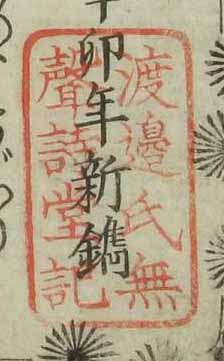 渡邉氏無
聲詩堂記
辛卯年新鐫